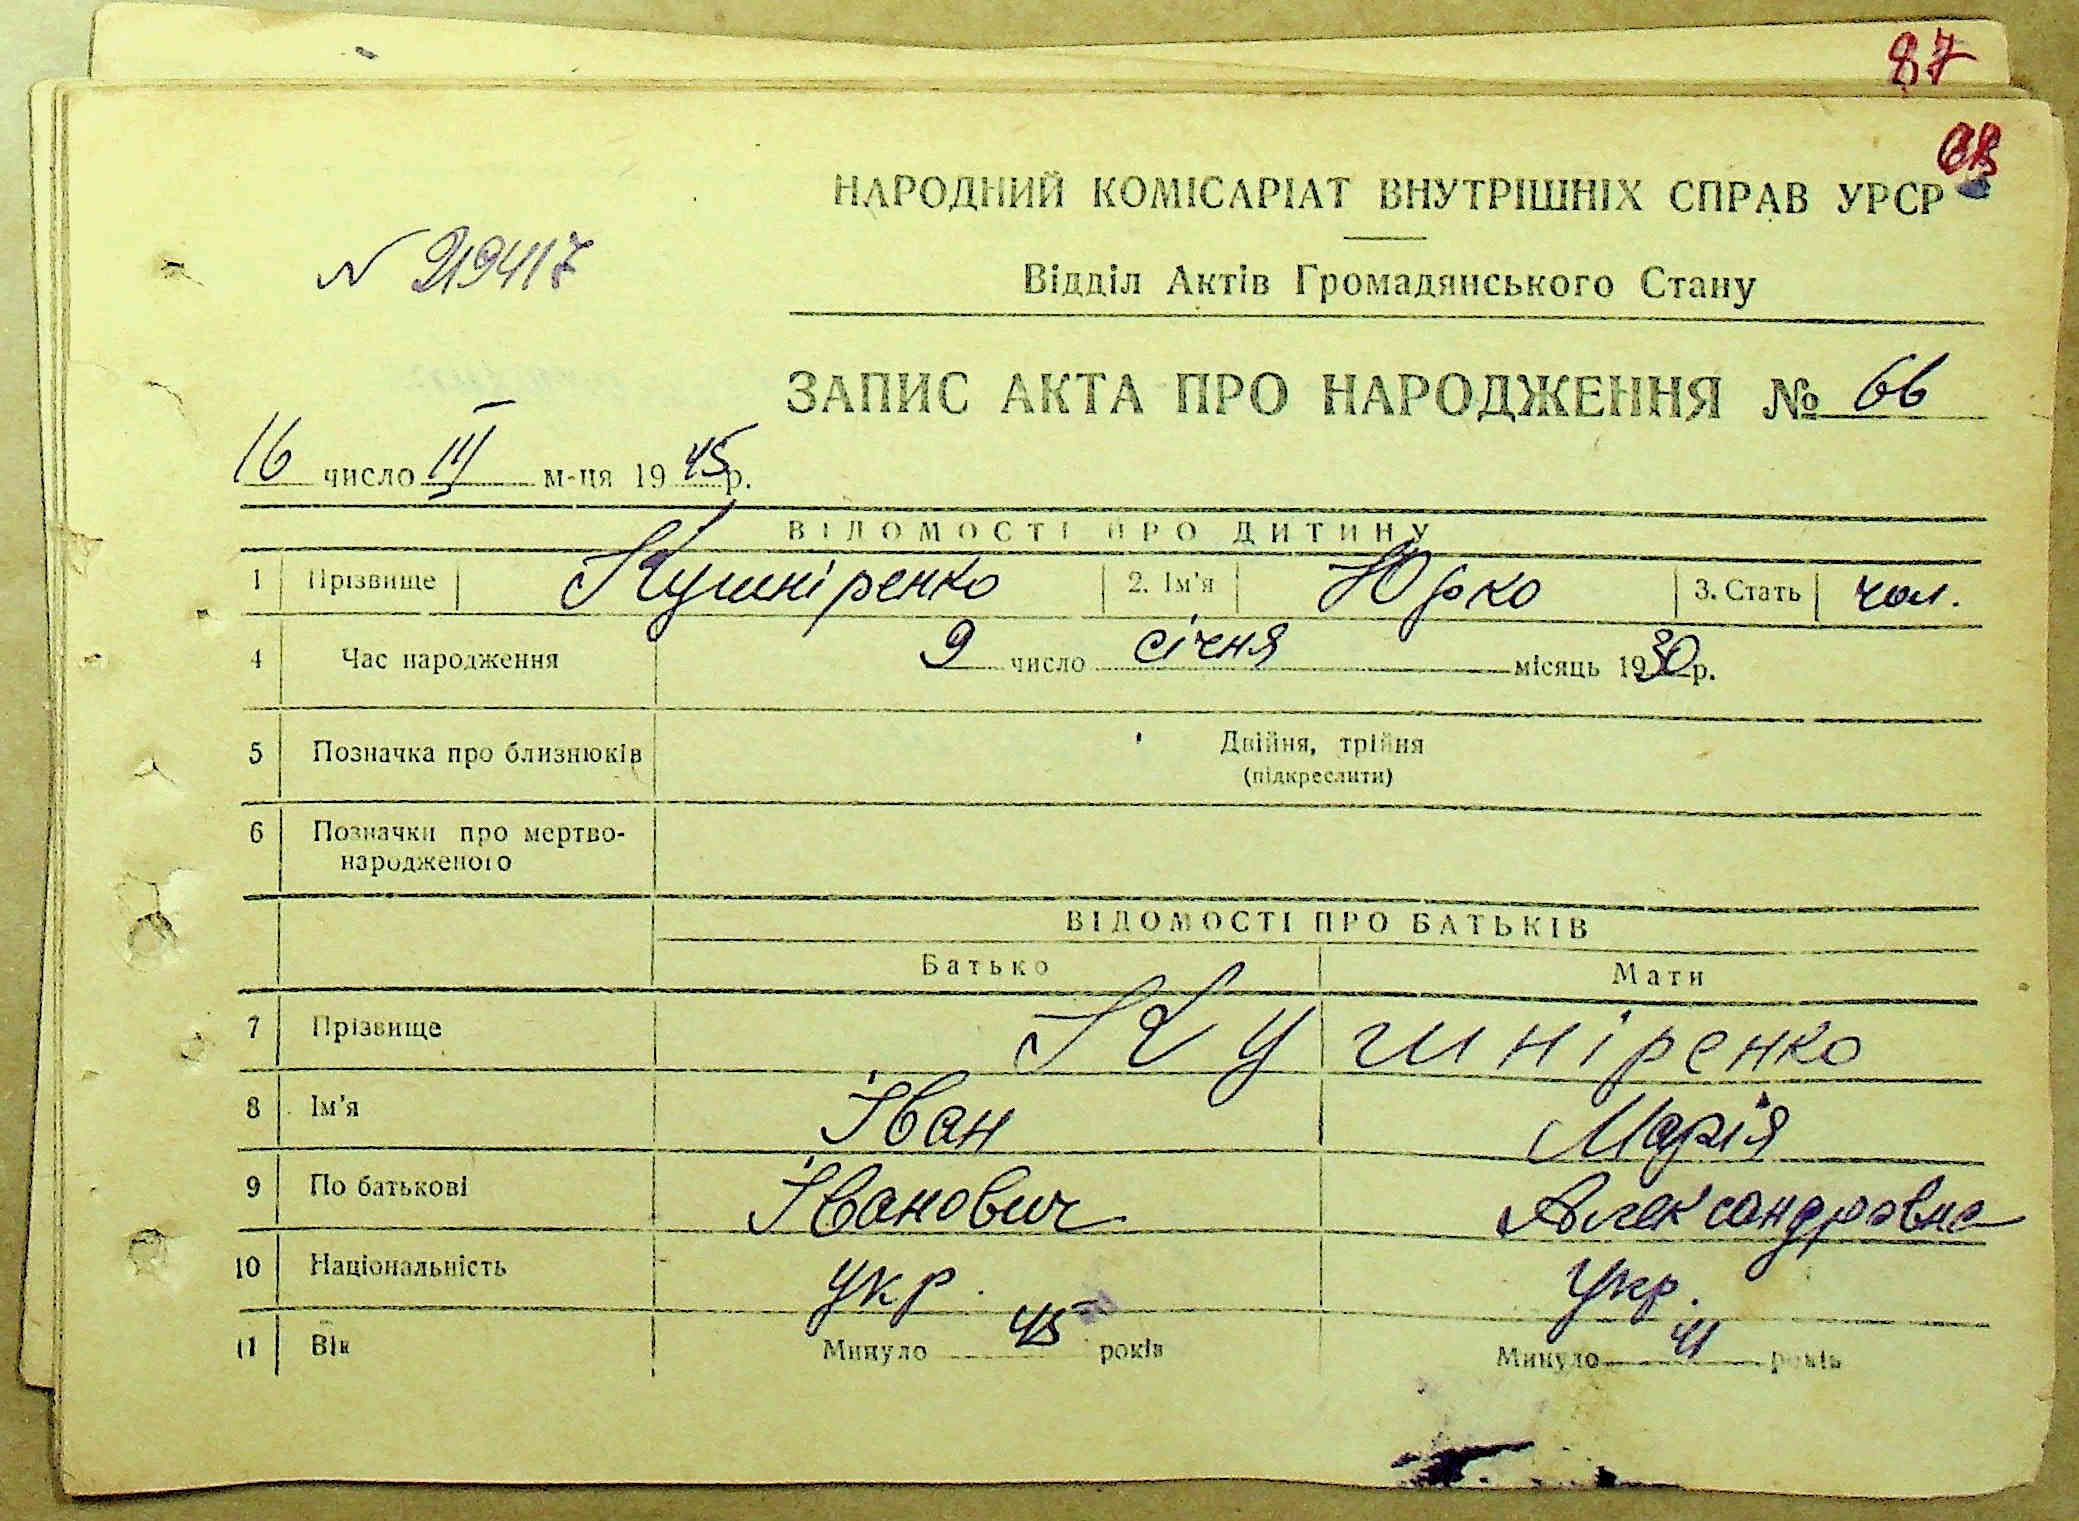 87
НАРОДНИЙ КОМІСАРІАТ ВНУТРІШНІХ СПРАВ УРСР
N 219417
Відділ Актів Громадянського Стану
ЗАПИС АКТА ПРО НАРОДЖЕННЯ № 66
16 число III м-ця 1945 р.
ВІДОМОСТІ ПРО ДИТИНУ
1 Прізвище Кушніренко 2. Ім'я Юрко 3. Стать чол.
4 Час народження 9 число січня місяць 1930 р.
5 Позначка про близнюків Двійня, трійня
(підкреслити)
6 Позначки про мертво-
народженого
ВІДОМОСТІ ПРО БАТЬКІВ
Батько Мати
7 Прізвище Кушніренко
8 Ім'я Іван Марія
9 По батькові Іванович Александровна
10 Національність укр. укр.
11 Вік Минуло 45 років Минуло 41 років